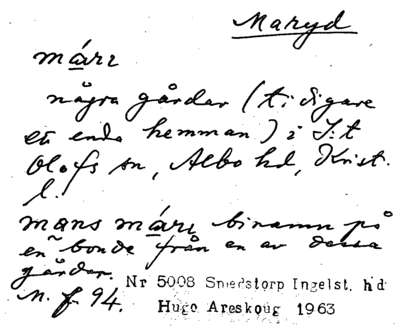 Maryd
márı
några gårdar (tidigare
ett enda hemman) i S:t
Olofs sn, Albo hd, Krist.
l.
mans márı binamn på
en bonde från en av dessa
gårdar.
Nr 5008 Smedstorp Ingelst. hd
N. f. 94.
Hugo Areskoug 1963